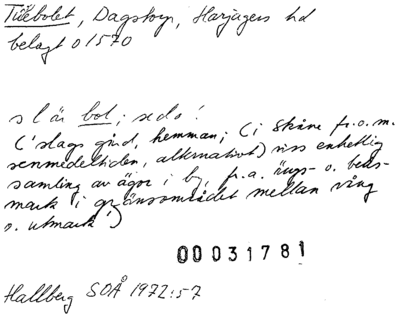 Tillebolet, Dagstorp, Harjagers hd
belagt o 1570
sl är bol; se do!
('slags gård, hemman; (i Skåne fr.o.m.
senmedeltiden, alternativt) viss enhetlig
samling av ägor i by, fr.a. ängs- o. betes-
mark i gränsområdet mellan vång
o. utmark')
00031781
Hallberg SOÅ 1972:57